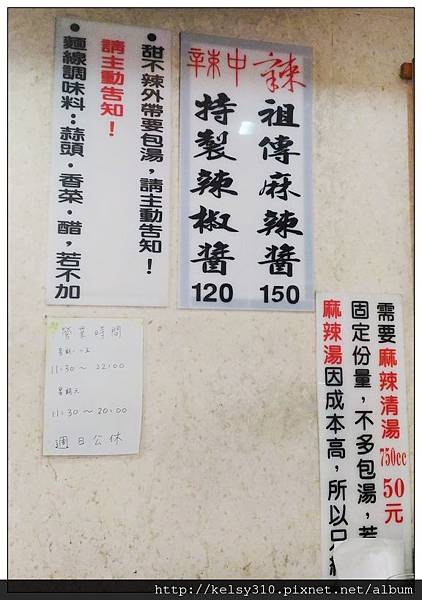 • 甜不辣外帶要包湯，請主動告知！
請主動告知！
• 麵線調味料：蒜頭．香菜．醋，若不加
辣
祖傳麻辣醬
150
中辣
特製辣椒醬
120
需要麻辣清湯750cc 50元
固定份量，不多包湯，若
麻辣湯因成本高，所以只
營業時間
11:30～22:00
11:30～20:00
週日公休
http://kelsy310.pixnet.net/album